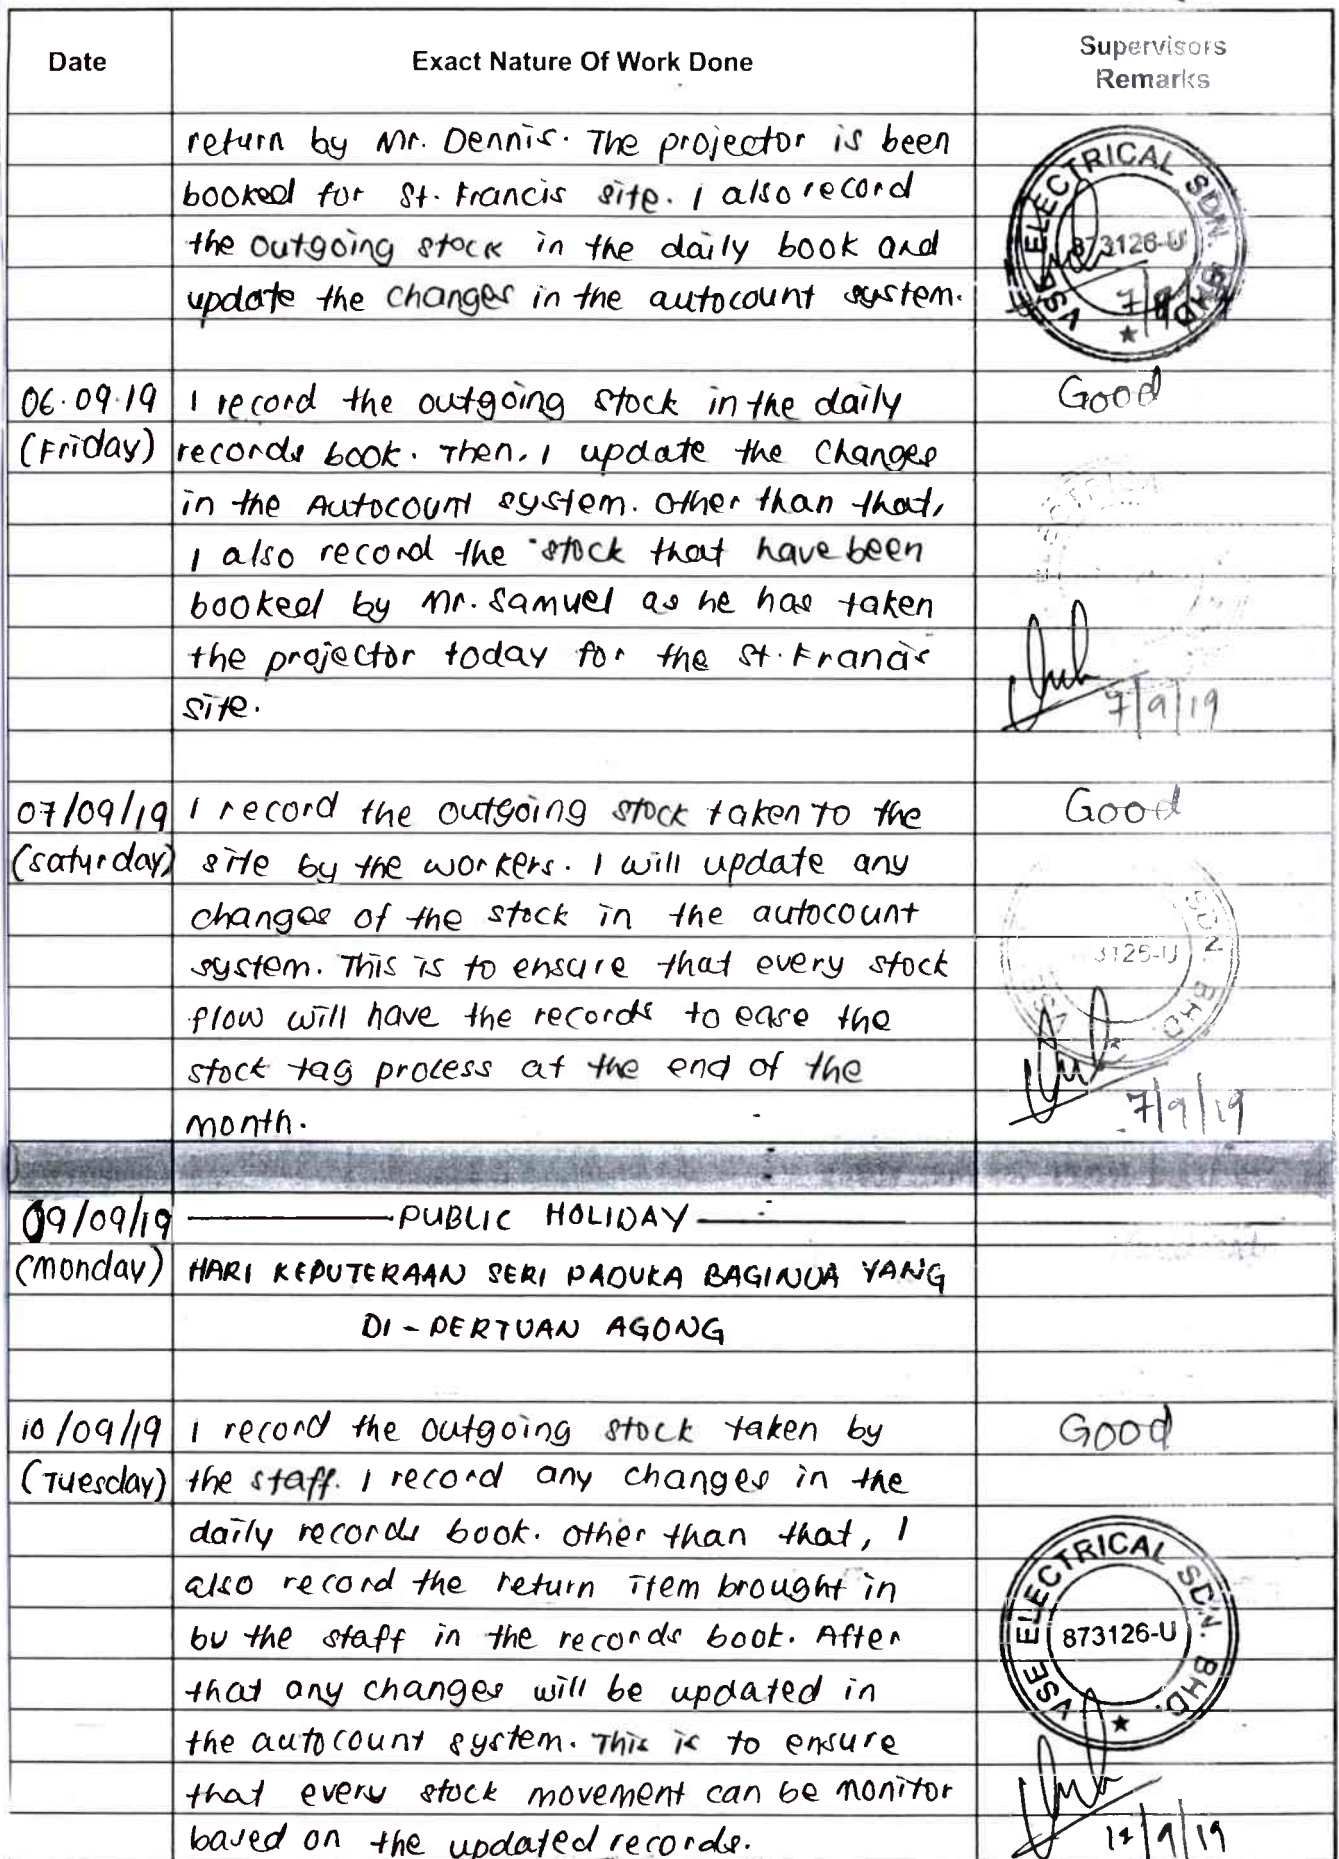 Date Exact Nature Of Work Done Supervisors
Remarks
return by Mr. Dennis. The projector is been
booked for St. Francis site. I also record
the outgoing stock in the daily book and
update the changes in the autocount system.
VSE ELECTRICAL SDN. BHD.
873126-U
06.09.19 I record the outgoing stock in the daily Good
(Friday) records book. Then, I update the changes
in the Autocount system. Other than that,
I also record the stock that have been
booked by Mr. Samuel as he has taken
the projector today for the St. Francis
site. 7/9/19
07/09/19 I record the outgoing stock taken to the Good
(Saturday) site by the workers. I will update any
changes of the stock in the autocount
system. This is to ensure that every stock
flow will have the records to ease the
stock tag process at the end of the
month. 7/9/19
3126-U
SDN. BHD.
VSE
09/09/19 PUBLIC HOLIDAY
(Monday) HARI KEPUTERAAN SERI PADUKA BAGINDA YANG
DI-PERTUAN AGONG
10/09/19 I record the outgoing stock taken by Good
(Tuesday) the staff. I record any changes in the
daily records book. Other than that, I
also record the return item brought in
by the staff in the records book. After
that any changes will be updated in
the autocount system. This is to ensure
that every stock movement can be monitor
based on the updated records.
VSE ELECTRICAL SDN. BHD.
873126-U